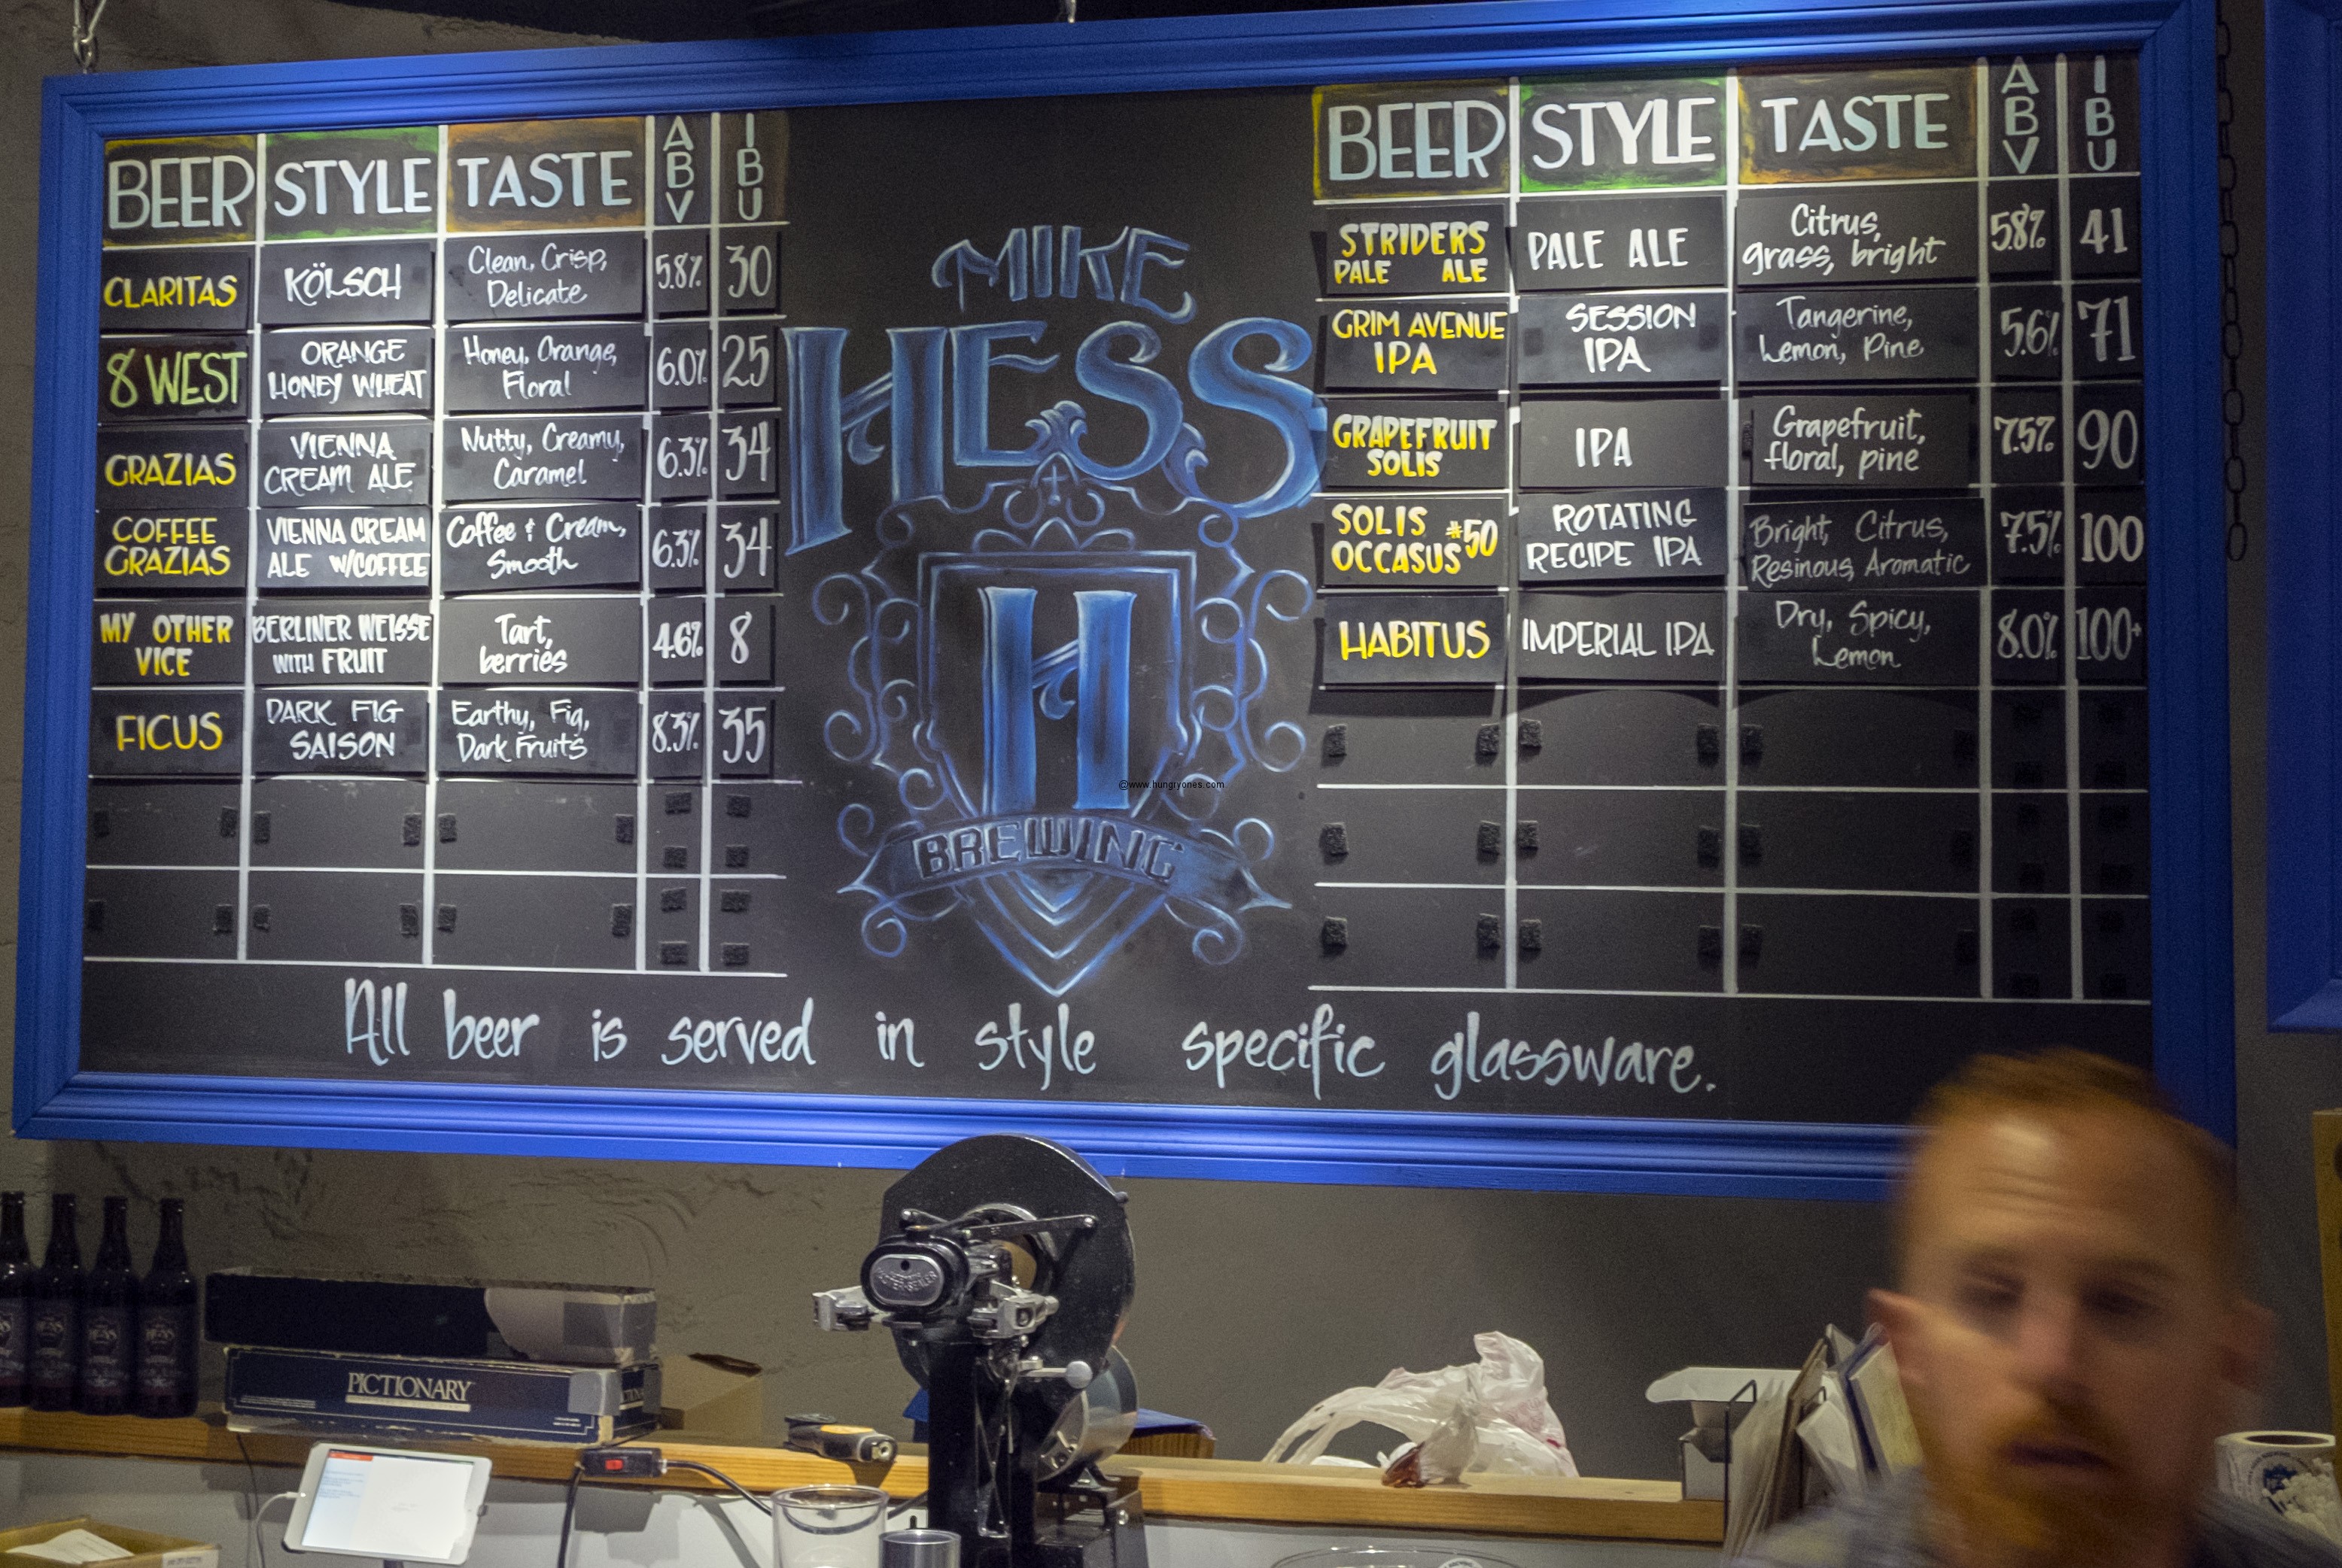 BEER STYLE TASTE ABV IBU
CLARITAS KÖLSCH Clean, Crisp, Delicate 5.8% 30
8 WEST ORANGE HONEY WHEAT Honey, Orange, Floral 6.0% 25
GRAZIAS VIENNA CREAM ALE Nutty, Creamy, Caramel 6.3% 34
COFFEE GRAZIAS VIENNA CREAM ALE W/COFFEE Coffee & Cream, Smooth 6.3% 34
MY OTHER VICE BERLINER WEISSE WITH FRUIT Tart, berries 4.6% 8
FICUS DARK FIG SAISON Earthy, Fig, Dark Fruits 8.3% 35
MIKE
HESS
H
BREWING
©www.hungryones.com
BEER STYLE TASTE ABV IBU
STRIDERS PALE ALE PALE ALE Citrus, grass, bright 5.8% 41
GRIM AVENUE IPA SESSION IPA Tangerine, Lemon, Pine 5.6% 71
GRAPEFRUIT SOLIS IPA Grapefruit, floral, pine 7.5% 90
SOLIS OCCASUS #50 ROTATING RECIPE IPA Bright, Citrus, Resinous, Aromatic 7.5% 100
HABITUS IMPERIAL IPA Dry, Spicy, Lemon 8.0% 100+
All beer is served in style specific glassware.
PICTIONARY
HESS
HESS